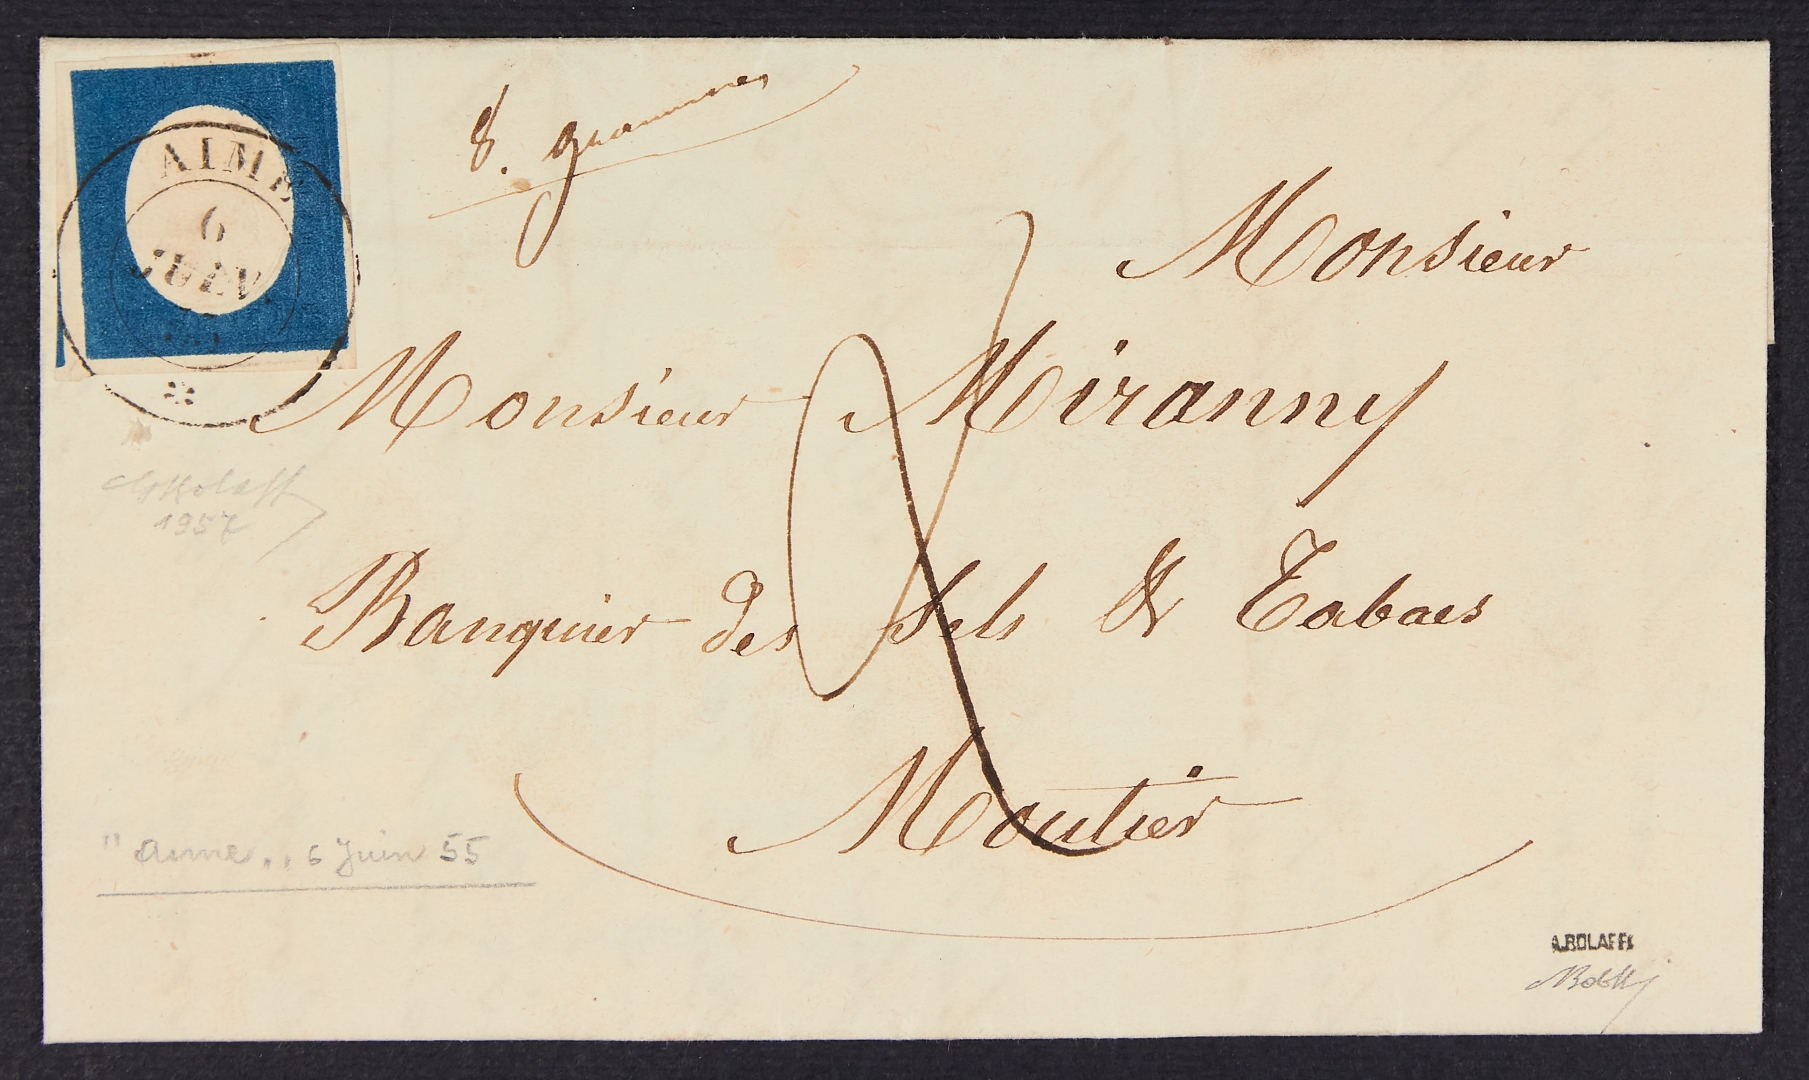 AIME
6
8. grammes
Monsieur
Monsieur Miranny
Banquier des Sels & Tabacs
Moutier
1957
"Aime" 6 Juin 55
A.BOLAFFI